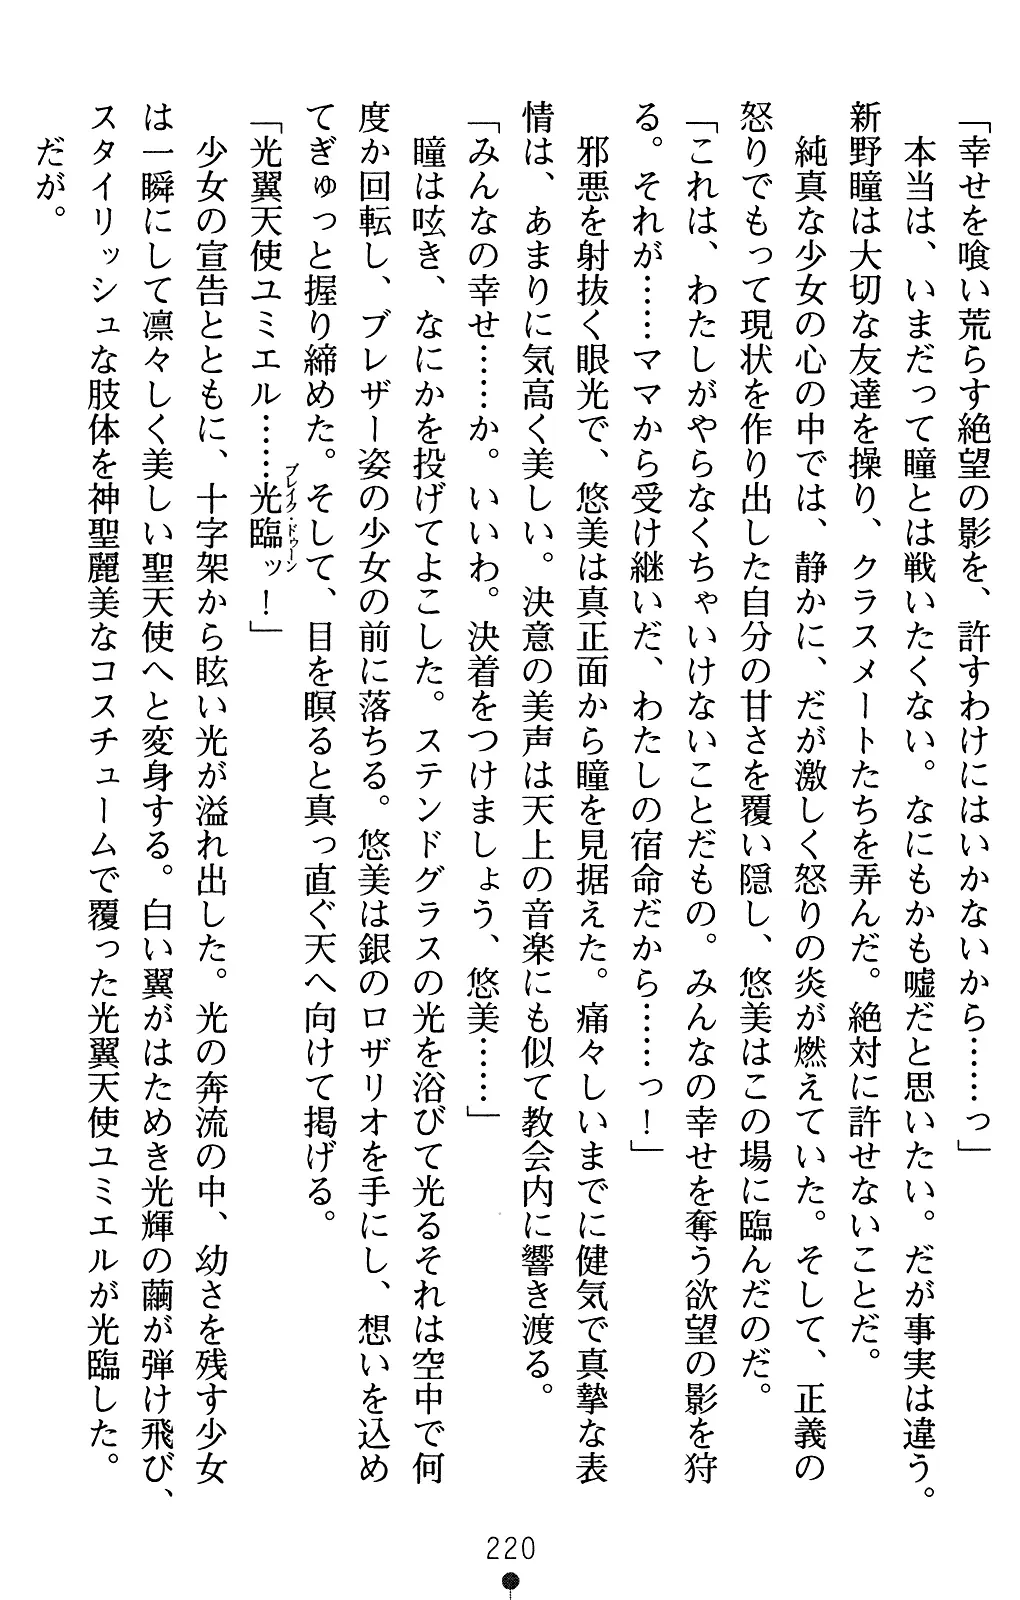 「幸せを喰い荒らす絶望の影を、許すわけにはいかないから……っ」
本当は、いまだって瞳とは戦いたくない。なにもかも嘘だと思いたい。だが事実は違う。
新野瞳は大切な友達を操り、クラスメートたちを弄んだ。絶対に許せないことだ。
純真な少女の心の中では、静かに、だが激しく怒りの炎が燃えていた。そして、正義の
怒りでもって現状を作り出した自分の甘さを覆い隠し、悠美はこの場に臨んだのだ。
「これは、わたしがやらなくちゃいけないことだもの。みんなの幸せを奪う欲望の影を狩
る。それが……ママから受け継いだ、わたしの宿命だから……っ！」
邪悪を射抜く眼光で、悠美は真正面から瞳を見据えた。痛々しいまでに健気で真摯な表
情は、あまりに気高く美しい。決意の美声は天上の音楽にも似て教会内に響き渡る。
「みんなの幸せ……か。いいわ。決着をつけましょう、悠美……」
瞳は呟き、なにかを投げてよこした。ステンドグラスの光を浴びて光るそれは空中で何
度か回転し、ブレザー姿の少女の前に落ちる。悠美は銀のロザリオを手にし、想いを込め
てぎゅっと握り締めた。そして、目を瞑ると真っ直ぐ天へ向けて掲げる。
「光翼天使ユミエル……光臨ッ！」
ブレイク・ドゥーン
少女の宣告とともに、十字架から眩い光が溢れ出した。光の奔流の中、幼さを残す少女
は一瞬にして凛々しく美しい聖天使へと変身する。白い翼がはためき光輝の繭が弾け飛び、
スタイリッシュな肢体を神聖麗美なコスチュームで覆った光翼天使ユミエルが光臨した。
だが。
220